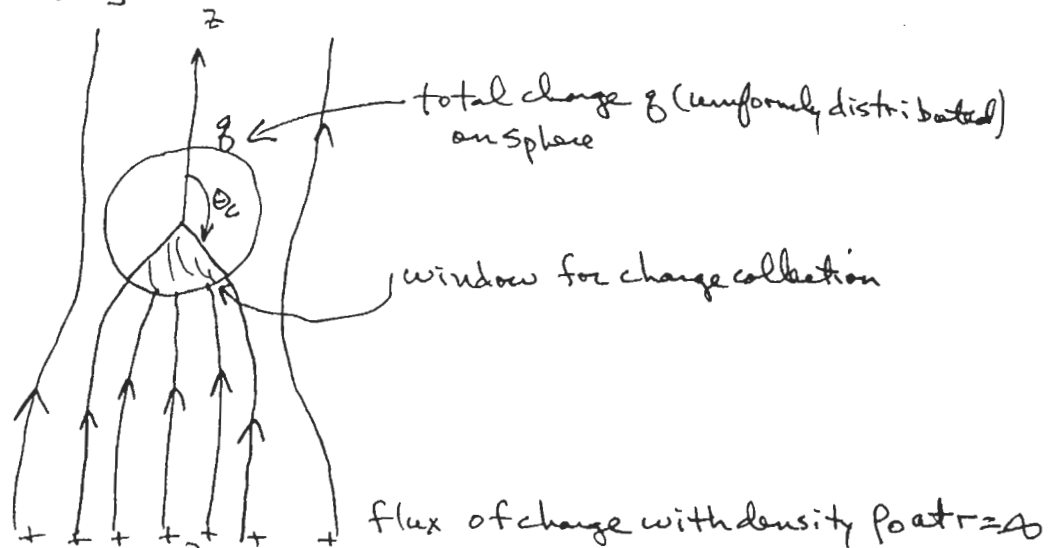 z
total charge q (uniformly distributed)
on sphere
q
θc
window for charge collection
+ + + + + + +
flux of charge with density ρ₀ at r=∞